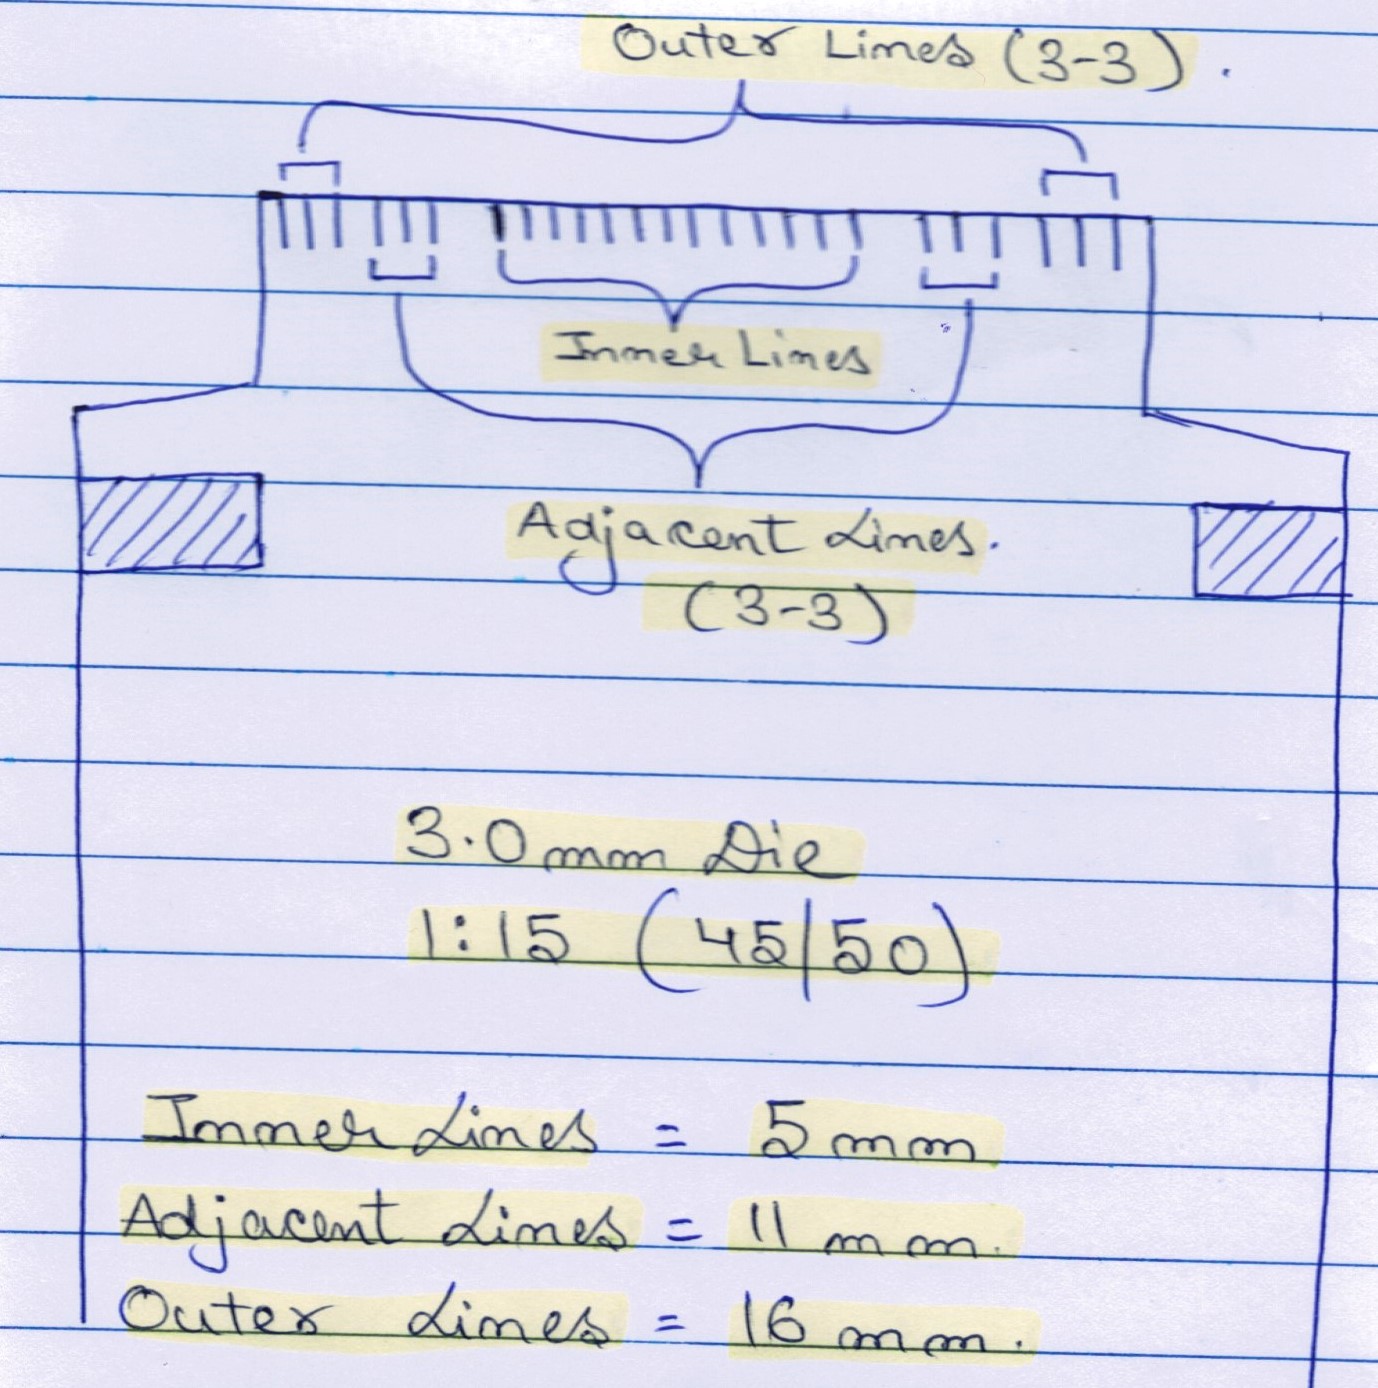 Outer Lines (3-3).
Inner Lines
Adjacent Lines.
(3-3)
3.0 mm Die
1:15 (45|50)
Inner Lines = 5 mm
Adjacent Lines = 11 mm.
Outer Lines = 16 mm.